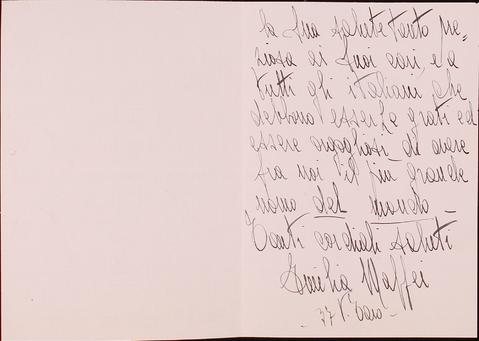 la Sua salute tanto pre=
ziosa ai Suoi cari, e a
tutti gli italiani che
debbono esserLe grati ed
essere orgogliosi di avere
fra noi il più grande
uomo del mondo –
Tanti cordiali saluti
Emilia Maffei
37 V.